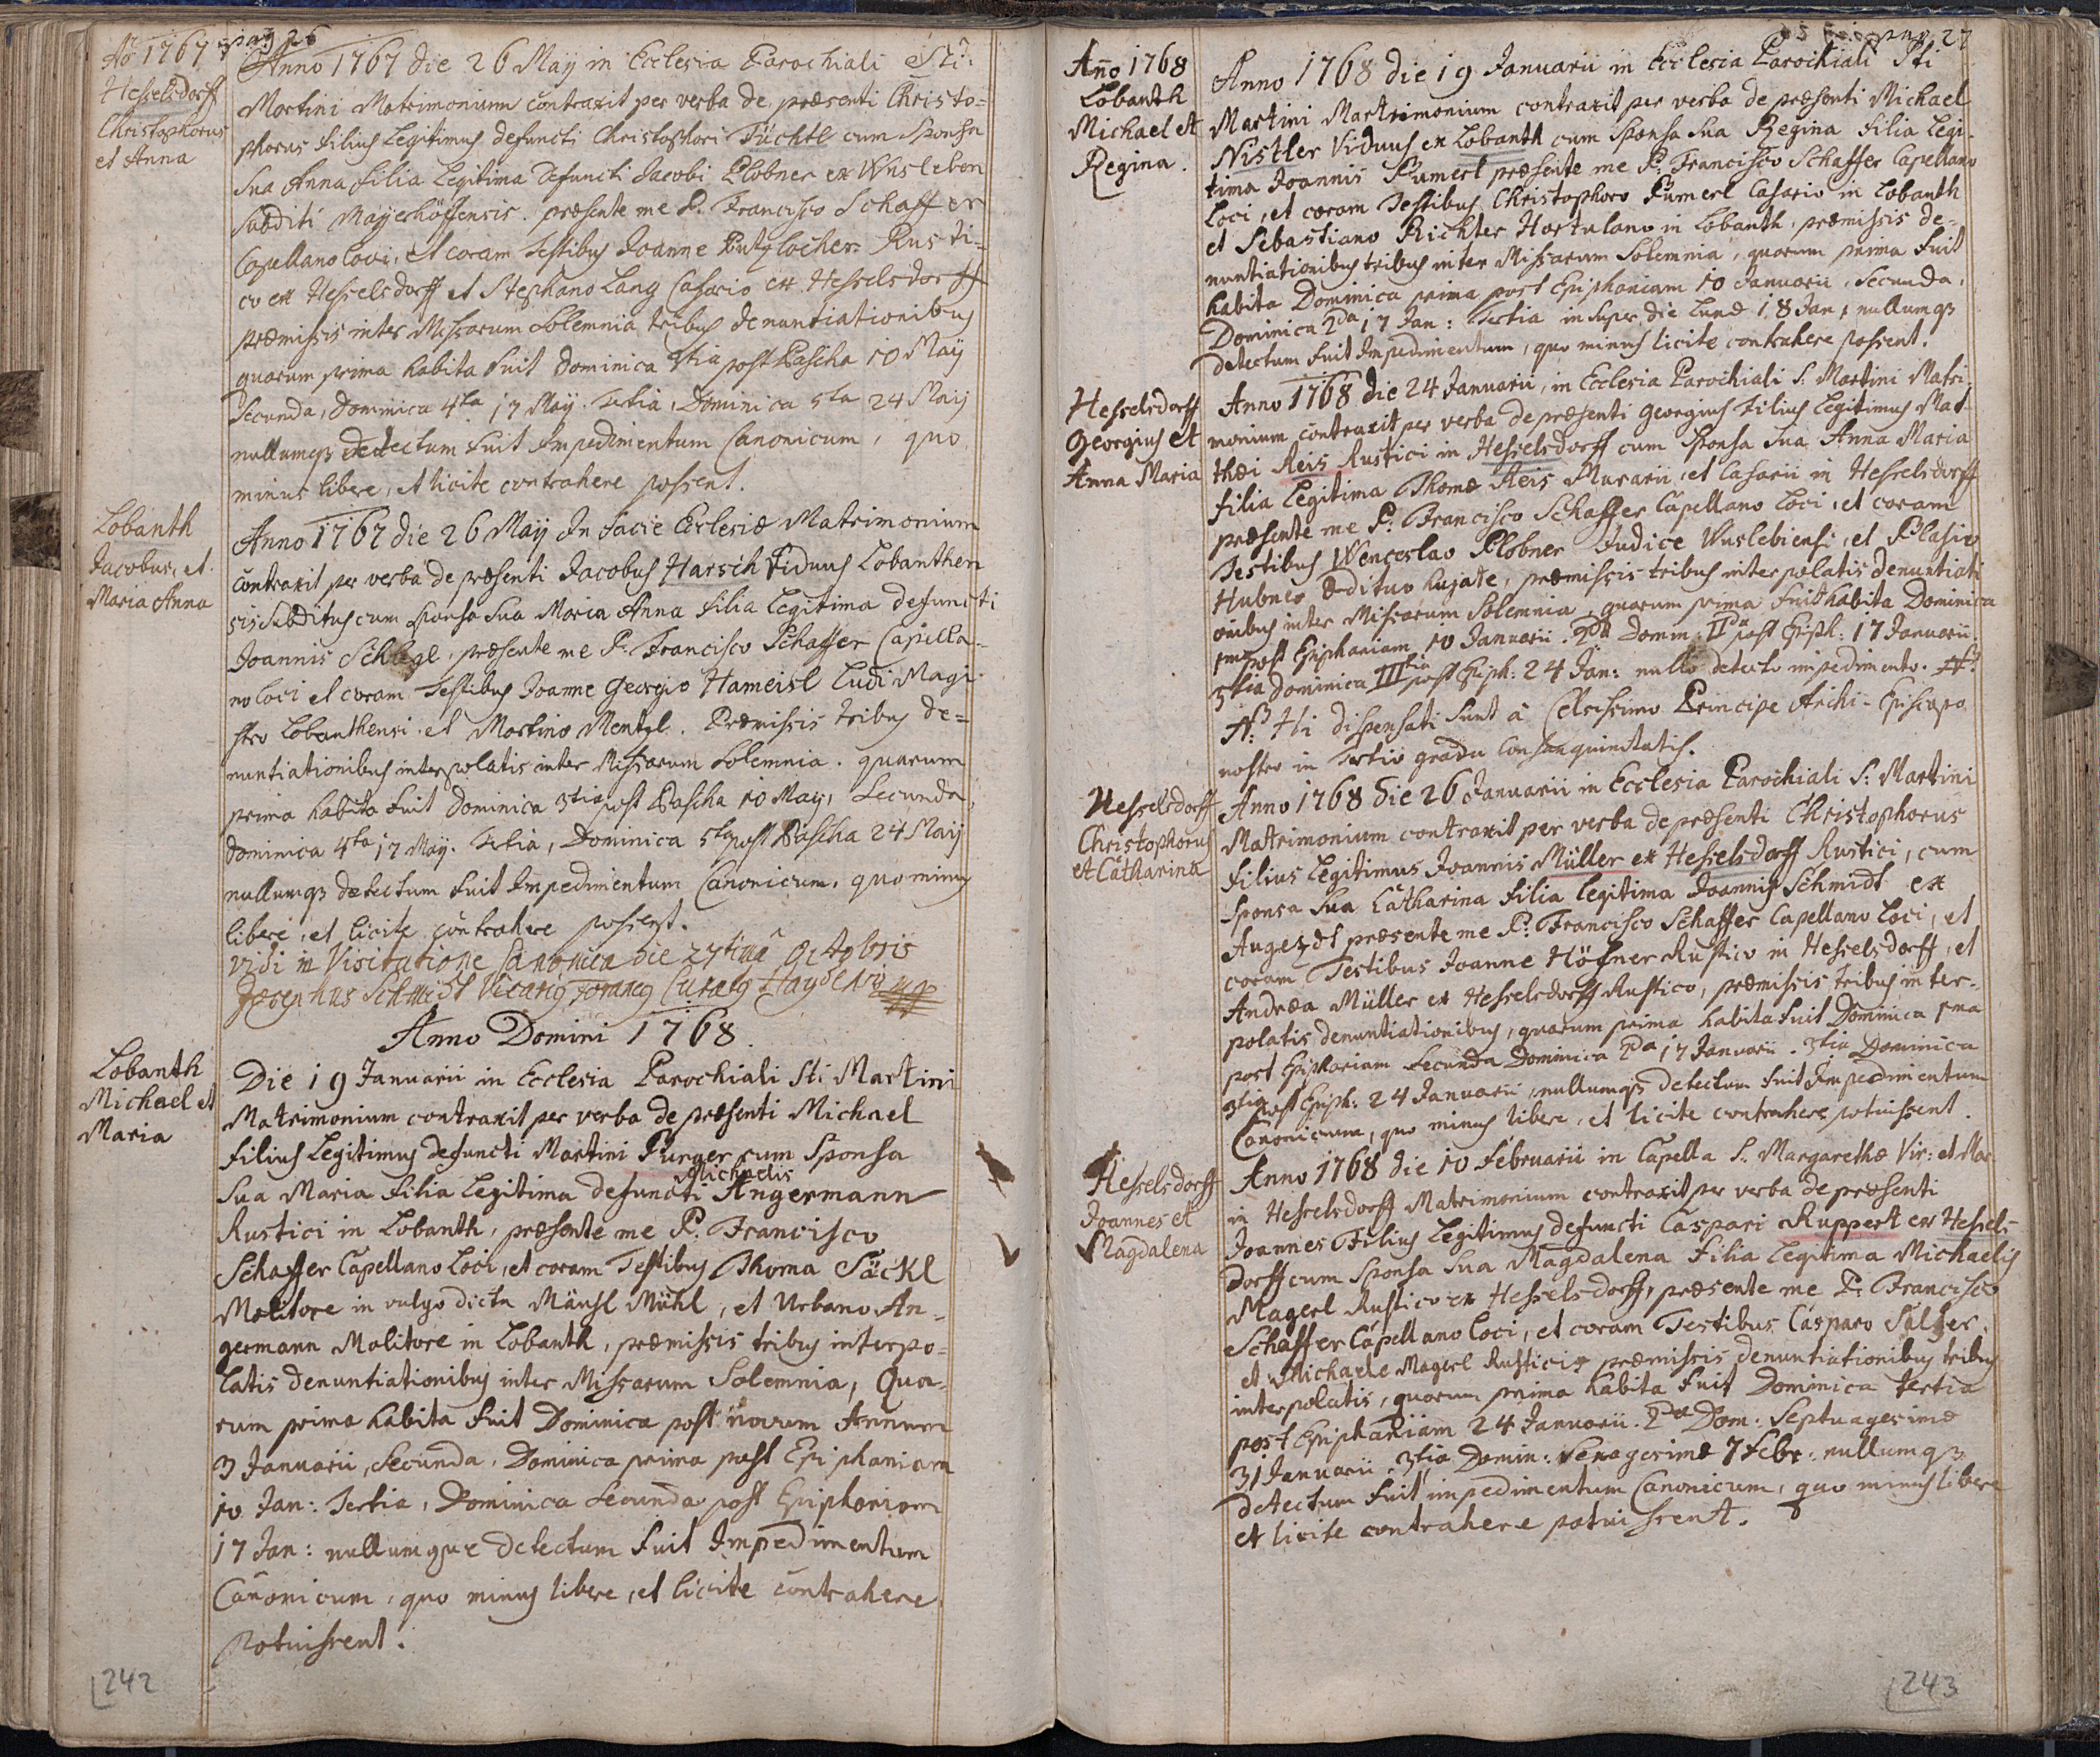 Aõ 1767
pag 26
Hesselsdorff
Christophorus
et Anna
Anno 1767 die 26 Maÿ in Ecclesia Parochiali Sti:
Martini Matrimonium contraxit per verba de præsenti Christo=
phorus filius Legitimus defuncti Christophori Füchtl cum Sponsa
Sua Anna filia Legitima defuncti Jacobi Plobner ex Wusleben
Subditi Mayerhöffensis. præsente me P. Francisco Schaffer
Capellano loci, et coram Testibus Joanne Putzlocher Rusti=
co ex Hesselsdorff et Stephano Lang Casario ex Hesselsdorff
præmissis inter Missarum Solemnia tribus denuntiationibus
quarum prima habita fuit Dominica 3tia post Pascha 10 Maÿ
Secunda, Dominica 4ta 17 Maÿ. Tertia, Dominica 5ta 24 Maij
nullumq3 detectum fuit Impedimentum Canonicum, quo
minus libere, et licite contrahere possent.
Lobanth
Jacobus, et
Maria Anna
Anno 1767 die 26 Maÿ In facie Ecclesiæ Matrimonium
contraxit per verba de præsenti Jacobus Harsch Viduus Lobanthen
sis Subditus cum Sponsa Sua Maria Anna filia Legitima defuncti
Joannis Schlegl, præsente me P. Francisco Schaffer Capella=
no loci et coram Testibus Joanne Georgio Hameisl Ludi Magi=
stro Lobanthensi et Martino Mentzl. Præmissis tribus de=
nuntiationibus interpolatis inter Missarum Solemnia. quarum
prima habita fuit Dominica 3tia post Pascha 10 Maÿ, Secunda,
Dominica 4ta 17 Maÿ. Tertia, Dominica 5ta post Pascha 24 Maij
nullumq3 detectum fuit Impedimentum Canonicum, quo minus
libere, et licite contrahere possent.
Vidi in Visitatione Canonica die 27tima Octobris
Josephus Schmidt Vicarius Foraneus Curatus Haydensis mp
Anno Domini 1768.
Lobanth
Michael et
Maria
Die 19 Januarii in Ecclesia Parochiali Sti Martini
Matrimonium contraxit per verba de præsenti Michael
filius Legitimus defuncti Martini Purger cum Sponsa
Michaelis
Sua Maria filia Legitima defuncti Angermann
Rustici in Lobanth, præsente me P. Francisco
Schaffer Capellano Loci, et coram Testibus Thoma Säckl
Molitore in vulgo dicta Mäusl Mühl, et Urbano An=
germann Molitore in Lobanth, præmissis tribus interpo=
latis denuntiationibus inter Missarum Solemnia, Qua=
rum prima habita fuit Dominica post novum Annum
3 Januarii, Secunda, Dominica prima post Epiphaniam
10 Jan: Tertia, Dominica Secunda post Epiphaniam
17 Jan: nullumque detectum fuit Impedimentum
Canonicum, quo minus libere, et licite contrahere
potuissent.
242
pag. 27
Año 1768
Lobanth
Michael et
Regina.
Anno 1768 die 19 Januarii in Ecclesia Parochiali Sti
Martini Martrimonium contraxit per verba de præsenti Michael
Nistler Viduus ex Lobanth cum Sponsa Sua Regina filia Legi=
tima Joannis Pumerl præsente me P. Francisco Schaffer Capellano
Loci, et coram Testibus Christophoro Pumerl Casario in Lobanth
et Sebastiano Richter Hortulano in Lobanth, præmissis de=
nuntiationibus tribus inter Missarum Solemnia, quorum prima fuit
habita Dominica prima post Epiphaniam 10 Januarii, Secunda,
Dominica 2da 17 Jan: Tertia insuper die Lunæ 18 Jan: nullumq3
detectum fuit Impedimentum, quo minus licite contrahere possent.
Hesselsdorff
Georgius et
Anna Maria
Anno 1768 die 24 Januarii, in Ecclesia Parochiali S: Martini Matri
monium contraxit per verba de præsenti Georgius filius Legitimus Mat=
thæi Reis Rustici in Hesselsdorff cum Sponsa Sua Anna Maria
filia Legitima Thomæ Reis Murarii, et Casarii in Hesselsdorff
præsente me P: Francisco Schaffer Capellano Loci, et coram
Testibus Wenceslao Plobner Judice Wuslebiensi, et Plasio
Hubner Ædituo hujate, præmissis tribus interpolatis denuntiati
onibus inter Missarum Solemnia, quarum prima fuit habita Dominica
1ma post Epiphaniam 10 Januarii. 2da Domin: IIda post Epiph: 17 Januarii.
3tia Dominica IIItia post Epiph: 24 Jan: nullo detecto impedimento.
Hi dispensati Sunt â Celsissimo Principe Archi-Episcopo
nostro in Tertio gradu Consanguinitatis.
Hesselsdorff
Christophorus
et Catharina
Anno 1768 Die 26 Januarii in Ecclesia Parochiali S: Martini
Matrimonium contraxit per verba de præsenti Christophorus
filius Legitimus Joannis Müller ex Hesselsdorff Rustici, cum
Sponsa Sua Catharina filia legitima Joannis Schmidt ex
Augezdt præsente me P. Francisco Schaffer Capellano Loci, et
coram Testibus Joanne Höfner Rustico in Hesselsdorff, et
Andræa Müller ex Hesselsdorff Rustico, præmissis tribus inter=
polatis denuntiationibus, quarum prima habita fuit Dominica 1ma
post Epiphaniam Secunda Dominica 2da 17 Januarii. 3tia Dominica
3tia post Epiph: 24 Januarii, nullumq3 detectum fuit Impedimentum
Canonicum, quo minus libere, et licite contrahere potuissent.
Hesselsdorff
Joannes et
Magdalena
Anno 1768 die 10 Februarii in Capella S. Margarethæ Vir: et Mar
in Hesselsdorff Matrimonium contraxit per verba de præsenti
Joannes Filius Legitimus defuncti Caspari Ruppert ex Hessels=
dorff cum Sponsa Sua Magdalena filia Legitima Michaelis
Magerl Rustico ex Hesselsdorff, præsente me P. Francisco
Schaffer Capellano loci, et coram Testibus Casparo Salfer,
et Michaele Magerl Rusticis præmissis denuntiationibus tribus
interpolatis, quarum prima habita fuit Dominica tertia
post Epiphaniam 24 Januarii. 2da Dom: Septuagesimæ
31 Januarii. 3tia Domin: Sexagesimæ 7 Febr: nullumq3
detectum fuit impedimentum Canonicum, quo minus libere
et licite contrahere potuissent.
243